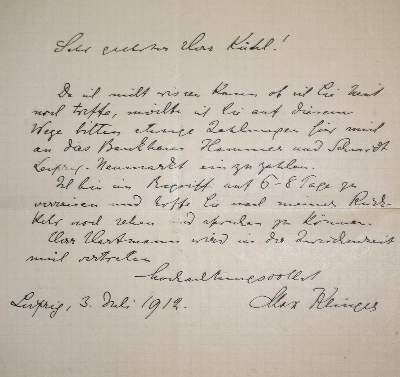 Sehr geehrter Herr Kühl!
Da ich nicht wissen kann ob ich Sie heut
noch treffe, möchte ich Sie auf diesem
Wege bitten etwaige Zahlungen für mich
an das Bankhaus Hammer und Schmidt
Leipzig-Neumarkt einzuzahlen.
Ich bin im Begriff auf 6-8 Tage zu
verreisen und hoffe Sie nach meiner Rück-
kehr noch sehen und sprechen zu können.
Herr Hartmann wird in der Zwischenzeit
mich vertreten
Hochachtungsvollst
Leipzig, 3. Juli 1912. Max Klinger